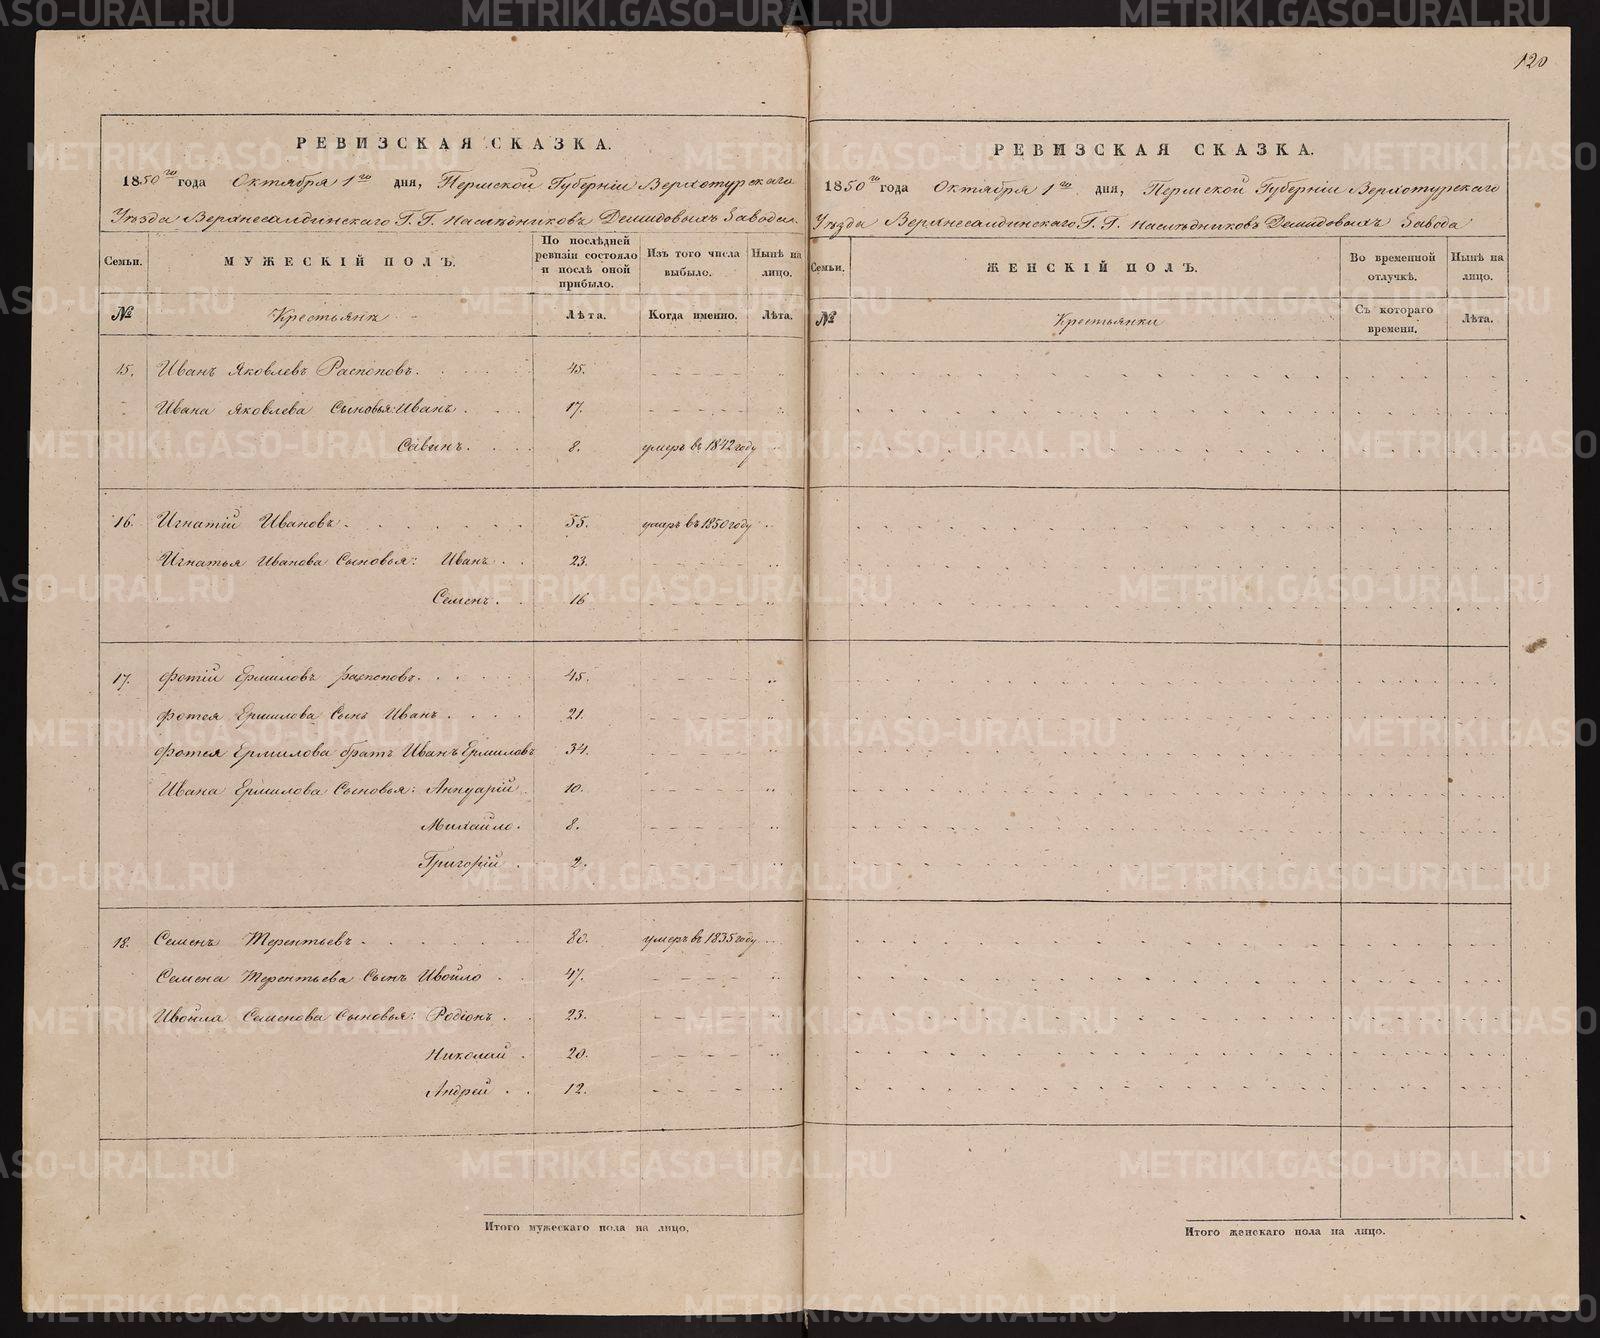 120
РЕВИЗСКАЯ СКАЗКА.
1850го года Октября 1го дня, Пермской Губерніи Верхотурскаго
Уѣзда Верхнесалдинскаго Г. Г. Наслѣдниковъ Демидовыхъ Завода.
Семьи.
МУЖЕСКІЙ ПОЛЪ.
По послѣдней ревизіи состояло и послѣ оной прибыло.
Изъ того числа выбыло.
Нынѣ на лицо.
№
Крестьянъ
Лѣта.
Когда именно.
Лѣта.
15. Иванъ Яковлевъ Распоповъ. 45.
Ивана Яковлева Сыновья: Иванъ. 17.
Савинъ. 8. умеръ въ 1842 году
16. Игнатій Ивановъ. 55. умеръ въ 1850 году
Игнатья Иванова Сыновья: Иванъ. 23.
Семенъ. 16
17. Фотій Ермиловъ Распоповъ. 45.
Фотея Ермилова Сынъ Иванъ. 21.
Фотея Ермилова братъ Иванъ Ермиловъ 34.
Ивана Ермилова Сыновья: Аннуарій. 10.
Михайло. 8.
Григорій. 2.
18. Семенъ Терентьевъ. 80. умеръ въ 1835 году
Семена Терентьева Сынъ Ивойло 47.
Ивойла Семенова Сыновья: Родіонъ. 23.
Николай. 20.
Андрей. 12.
Итого мужескаго пола на лицо.
РЕВИЗСКАЯ СКАЗКА.
1850го года Октября 1го дня, Пермской Губерніи Верхотурскаго
Уѣзда Верхнесалдинскаго Г. Г. Наслѣдниковъ Демидовыхъ Завода
Семьи.
ЖЕНСКІЙ ПОЛЪ.
Во временной отлучкѣ.
Нынѣ на лицо.
№
Крестьянки
Съ котораго времени.
Лѣта.
Итого женскаго пола на лицо.
METRIKI.GASO-URAL.RU